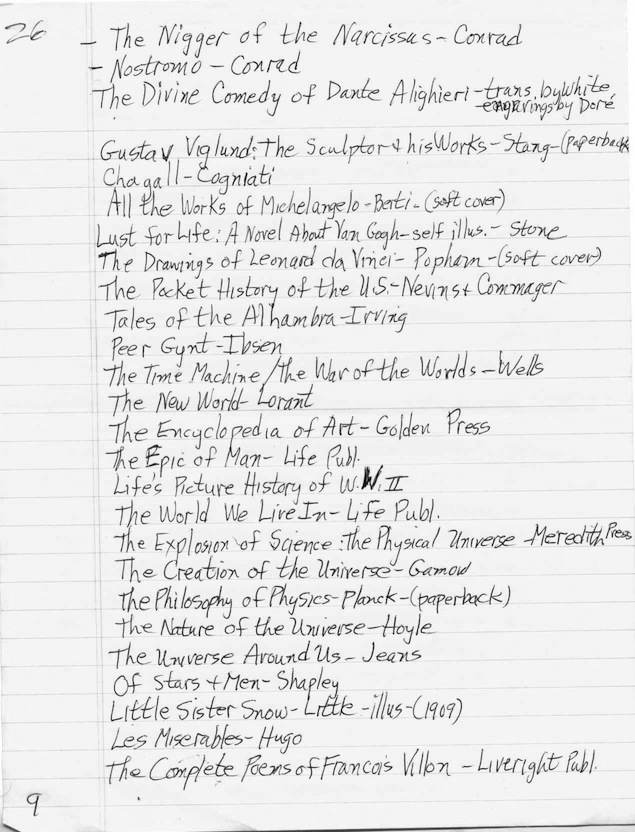 26
- The Nigger of the Narcissus - Conrad
- Nostromo - Conrad
The Divine Comedy of Dante Alighieri - trans. by White,
engravings by Doré
Gustav Viglund: The Sculptor + his Works - Stang - (paperback
Chagall - Cogniati
All the Works of Michelangelo - Berti - (soft cover)
Lust for Life: A Novel About Van Gogh - self illus. - Stone
The Drawings of Leonard da Vinci - Popham - (soft cover)
The Pocket History of the U.S. - Nevins + Commager
Tales of the Alhambra - Irving
Peer Gynt - Ibsen
The Time Machine / the War of the Worlds - Wells
The New World - Lorant
The Encyclopedia of Art - Golden Press
The Epic of Man - Life Publ.
Life's Picture History of W.W. II
The World We Live In - Life Publ.
The Explosion of Science: The Physical Universe - Meredith Press
The Creation of the Universe - Gamow
The Philosophy of Physics - Planck - (paperback)
The Nature of the Universe - Hoyle
The Universe Around Us - Jeans
Of Stars + Men - Shapley
Little Sister Snow - Little - illus - (1909)
Les Miserables - Hugo
The Complete Poems of Francois Villon - Liveright Publ.
9